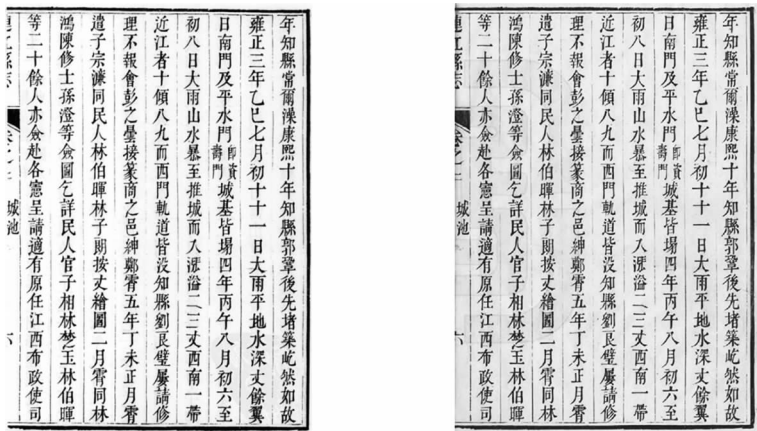 年知縣常爾澡康熙十年知縣郭鞏後先堵築屹然如故
雍正三年乙巳七月初十十一日大雨平地水深丈餘翼
日南門及平水門即資壽門城基皆塌四年丙午八月初六至
初八日大雨山水暴至推城而入漲溢二三丈西南一帶
近江者十傾八九而西門軌道皆没知縣劉良璧屢請修
理不報會彭之曇接篆商之邑紳鄭霄五年丁未正月霄
遣子宗濂同民人林伯暉林子朗按丈繪圖二月霄同林
鴻陳修士孫澄等僉圖乞詳民人官子相林楚玉林伯暉
等二十餘人亦僉赴各憲呈請適有原任江西布政使司
連江縣志
卷之二
城池
六
年知縣常爾澡康熙十年知縣郭鞏後先堵築屹然如故
雍正三年乙巳七月初十十一日大雨平地水深丈餘翼
日南門及平水門即資壽門城基皆塌四年丙午八月初六至
初八日大雨山水暴至推城而入漲溢二三丈西南一帶
近江者十傾八九而西門軌道皆没知縣劉良璧屢請修
理不報會彭之曇接篆商之邑紳鄭霄五年丁未正月霄
遣子宗濂同民人林伯暉林子朗按丈繪圖二月霄同林
鴻陳修士孫澄等僉圖乞詳民人官子相林楚玉林伯暉
等二十餘人亦僉赴各憲呈請適有原任江西布政使司
連江縣志
卷之二
城池
六